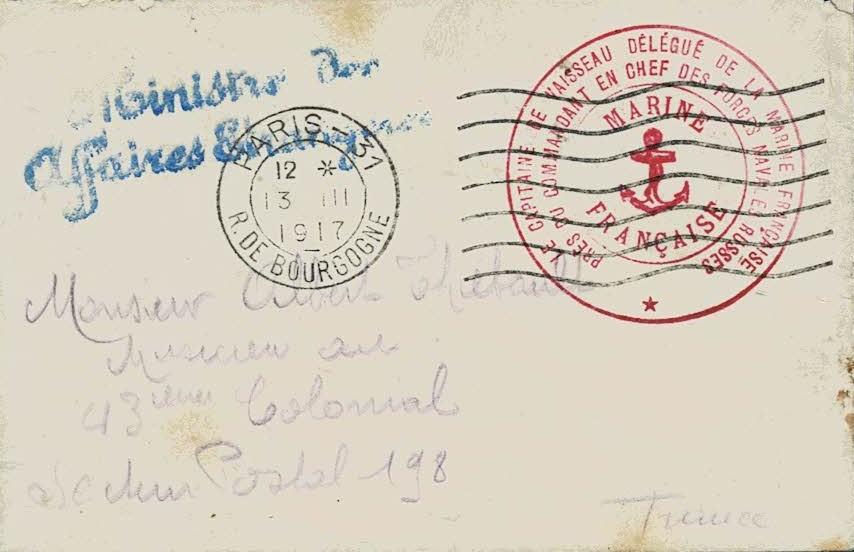 Ministre des
Affaires Etrangères
PARIS-31
12 *
13 III
1917
R. DE BOURGOGNE
LE CAPITAINE DE VAISSEAU DÉLÉGUÉ DE LA MARINE FRANÇAISE
PRÈS DU COMMANDANT EN CHEF DES FORCES NAVALES RUSSES
MARINE
FRANÇAISE
Monsieur Albert Thébault
Musicien au
43ième Colonial
Secteur Postal 198
France